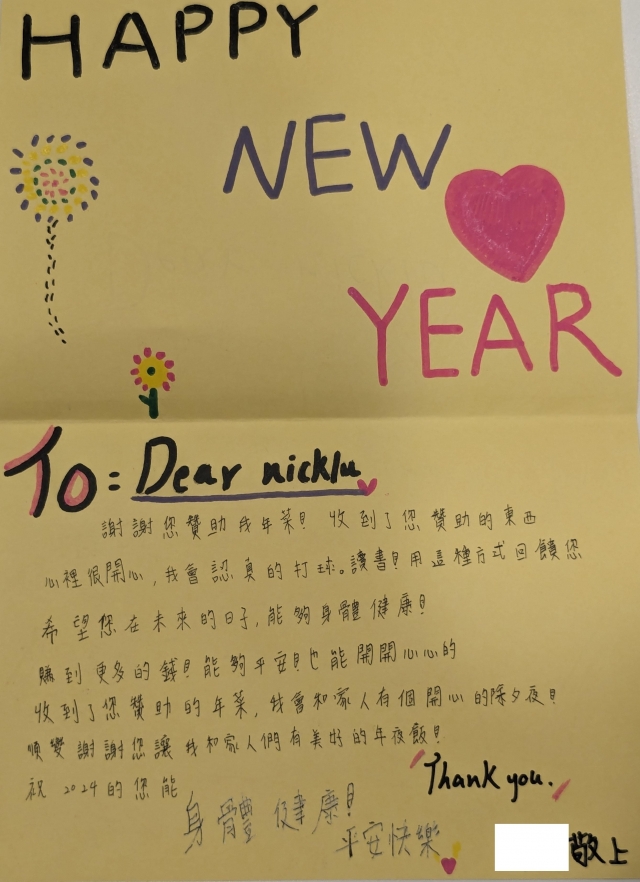 HAPPY
NEW
YEAR
To: Dear nicklu
謝謝您贊助我年菜! 收到了您贊助的東西
心裡很開心,我會認真的打球。讀書!用這種方式回饋您
希望您在未來的日子,能夠身體健康!
賺到更多的錢!能夠平安!也能開開心心的
收到了您贊助的年菜,我會和家人有個開心的除夕夜!
順變謝謝您讓我和家人們有美好的年夜飯!
祝 2024的您能
身體健康!
平安快樂
Thank you.
敬上